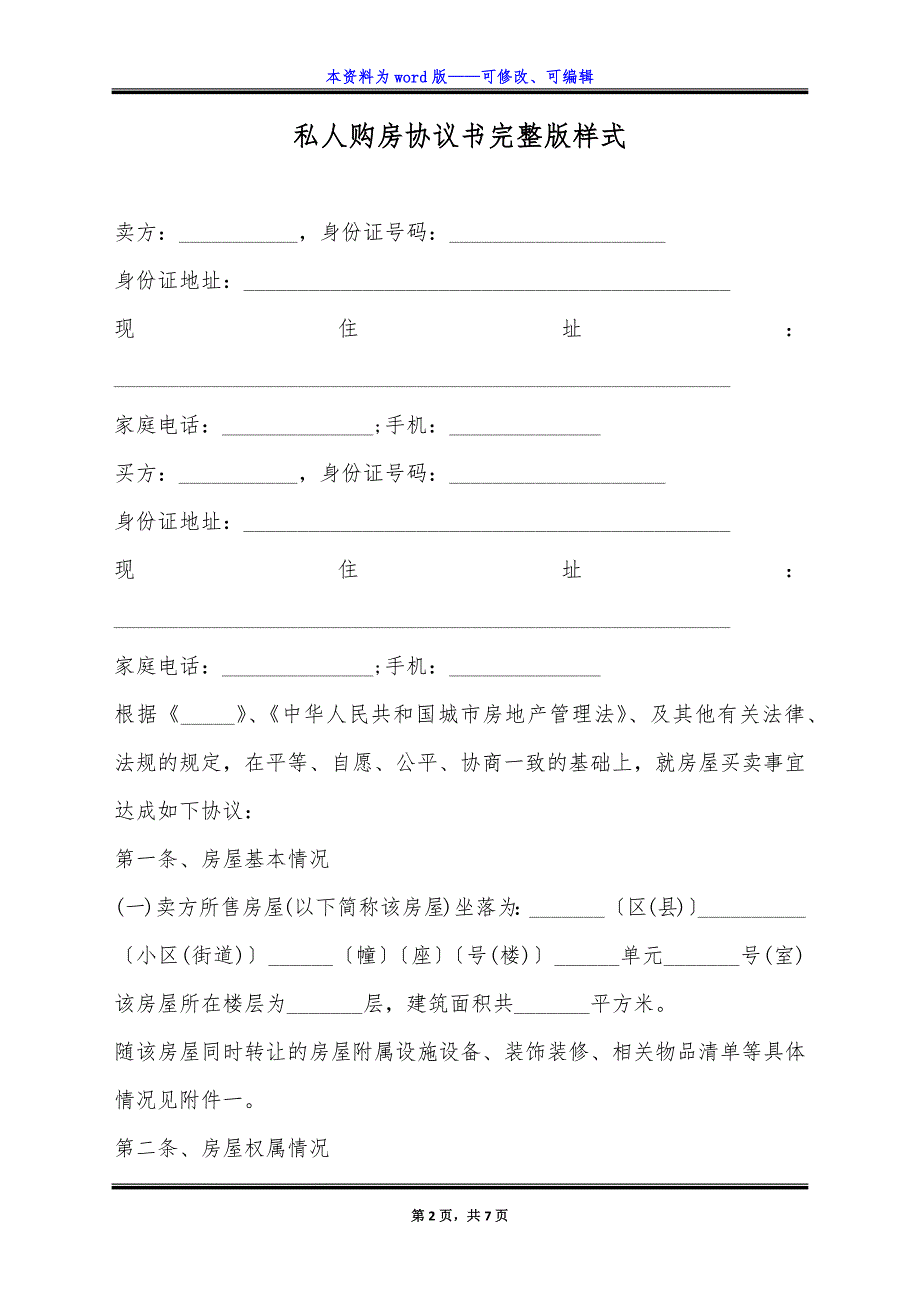 本资料为 word 版——可修改、可编辑
私人购房协议书完整版样式
卖方：___________，身份证号码：____________________
身份证地址：_____________________________________________
现住址：
_________________________________________________________
家庭电话：______________;手机：______________
买方：___________，身份证号码：____________________
身份证地址：_____________________________________________
现住址：
_________________________________________________________
家庭电话：______________;手机：______________
根据《_____》、《中华人民共和国城市房地产管理法》、及其他有关法律、
法规的规定，在平等、自愿、公平、协商一致的基础上，就房屋买卖事宜
达成如下协议：
第一条、房屋基本情况
(一)卖方所售房屋(以下简称该房屋)坐落为：_______〔区(县)〕__________
〔小区(街道)〕______〔幢〕〔座〕〔号(楼)〕______单元_______号(室)
该房屋所在楼层为_______层，建筑面积共_______平方米。
随该房屋同时转让的房屋附属设施设备、装饰装修、相关物品清单等具体
情况见附件一。
第二条、房屋权属情况
第 2 页，共 7 页